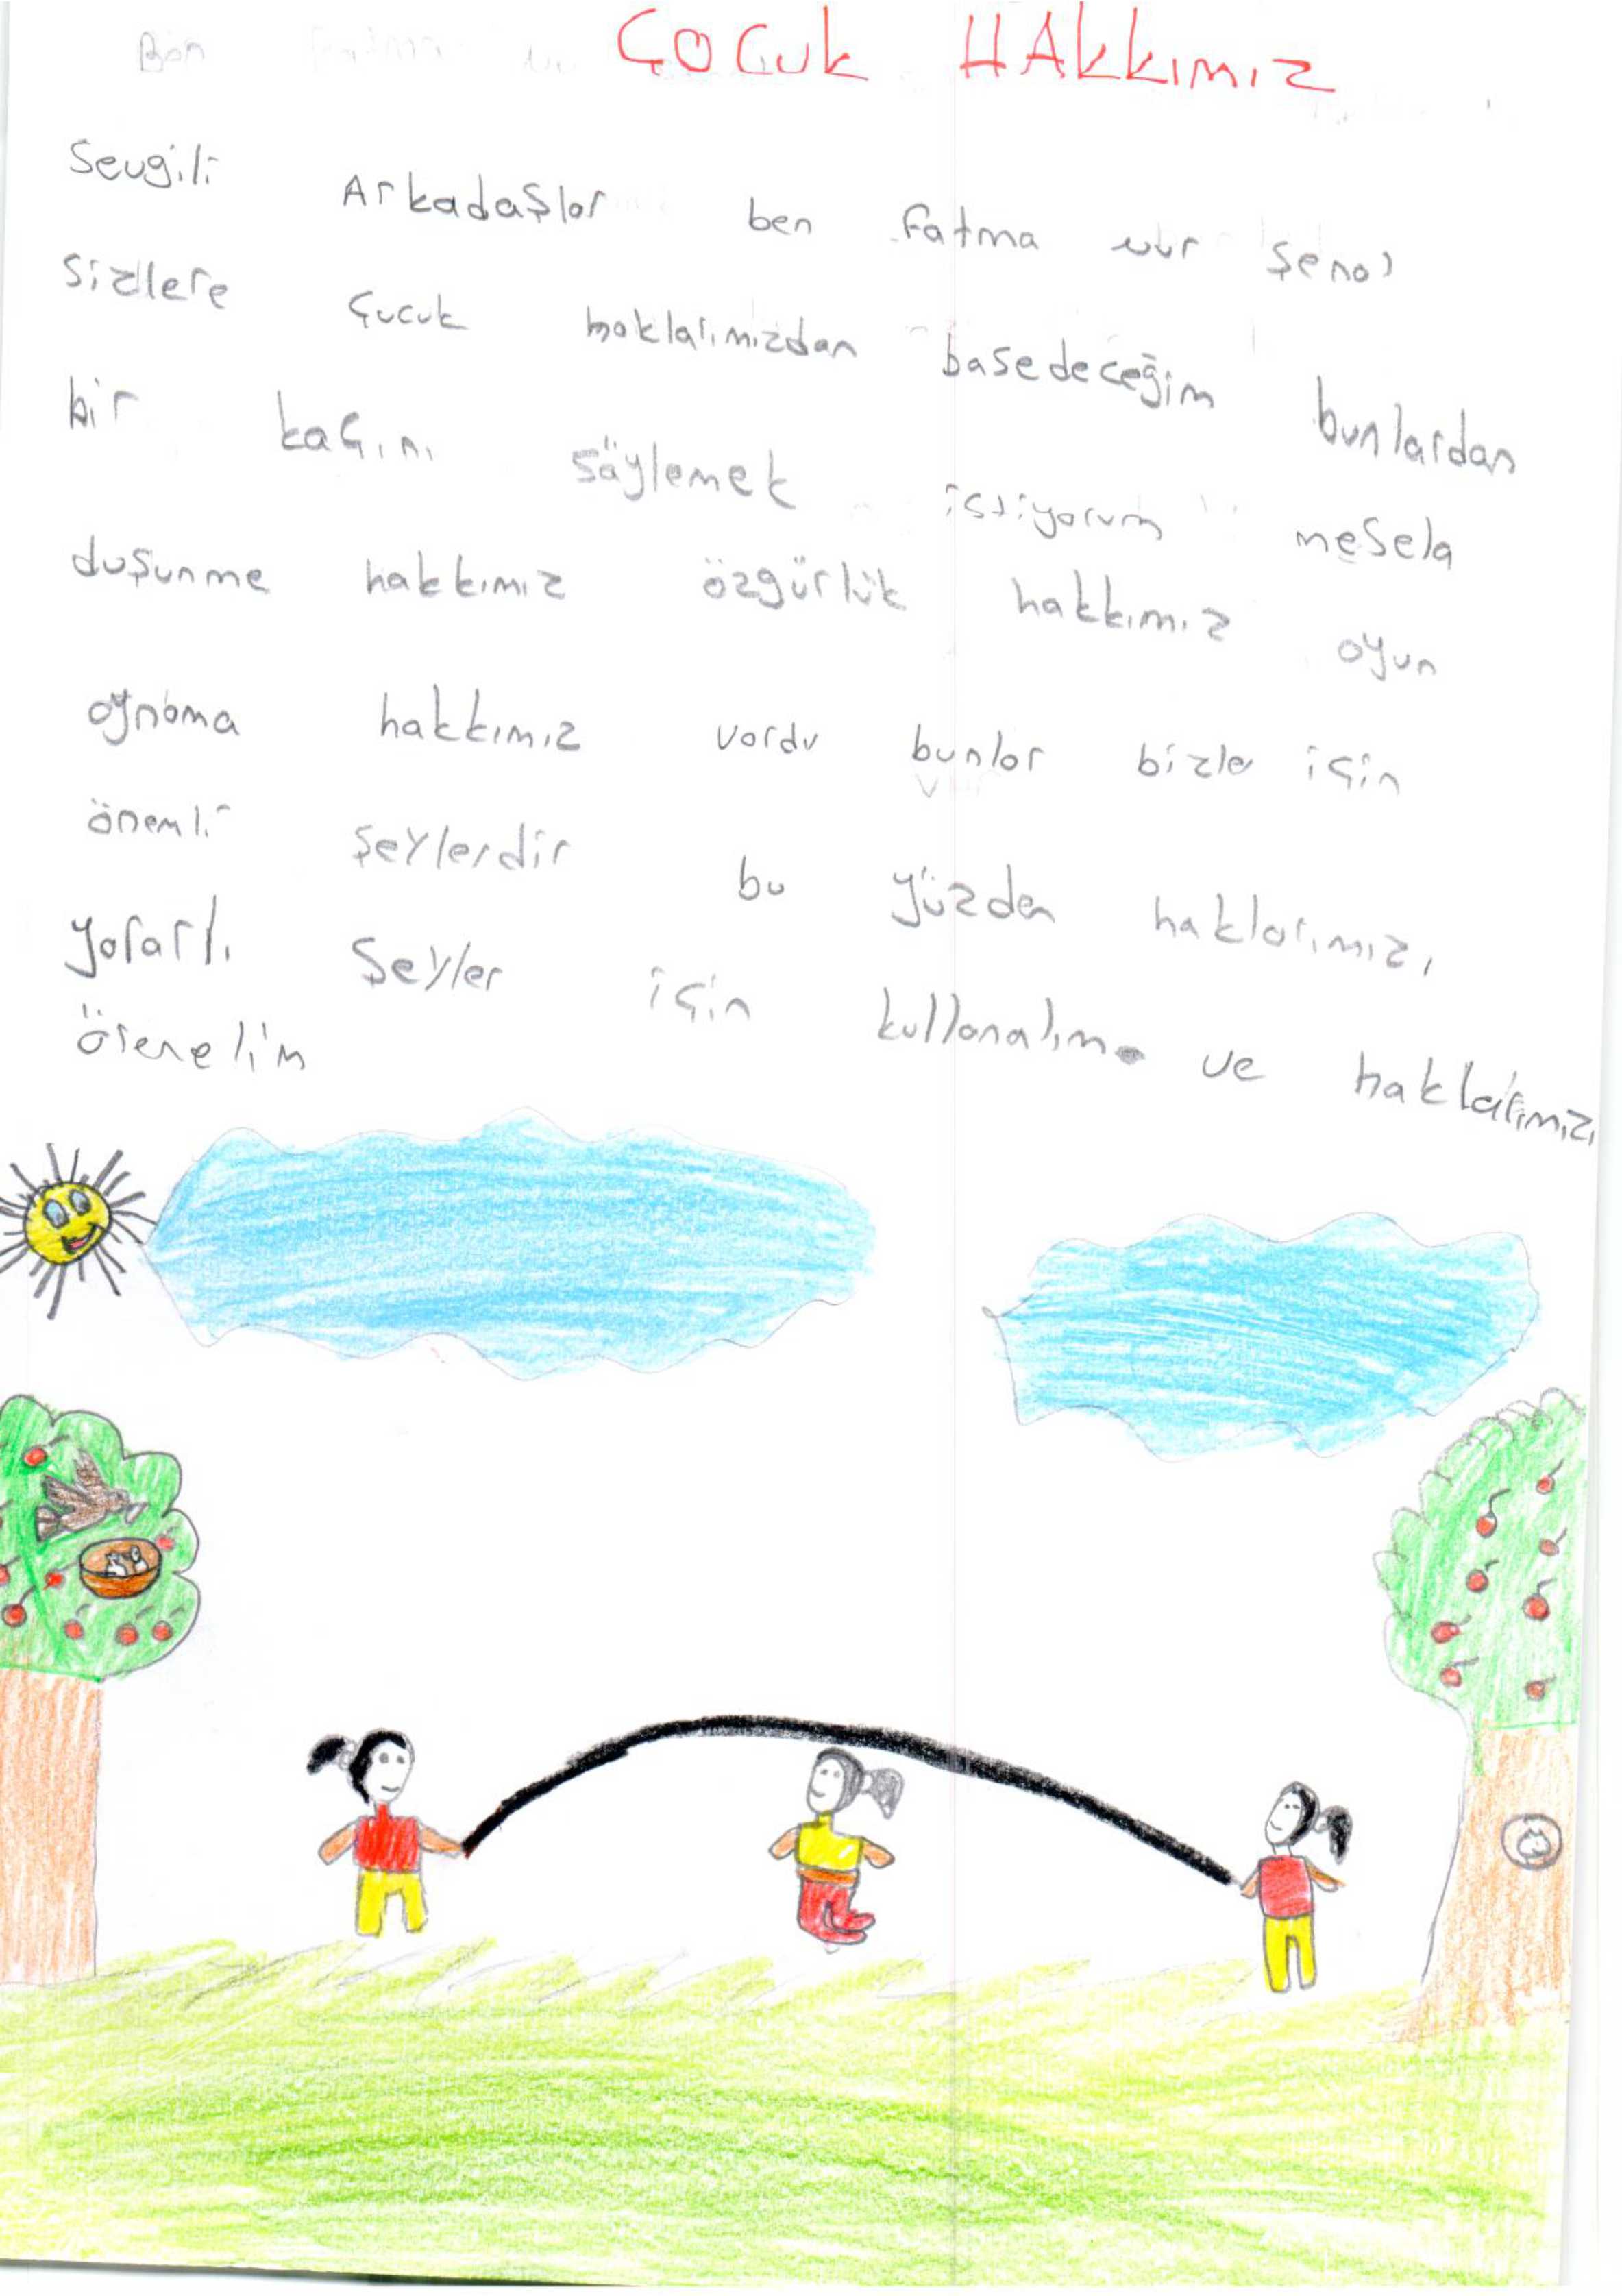 ÇOCuk HAkkımız
Sevgili Arkadaşlar ben fatma nur şenol
sizlere Çucuk haklarımızdan basedeceğim bunlardan
bir kaçını söylemek istiyorum mesela
duşunme hakkımız özgürlük hakkımız oyun
oynama hakkımız vardu bunlar bizle için
önemli şeylerdir bu yüzden haklarımızı
yararlı şeyler için kullanalım ve haklarımızı
örenelim